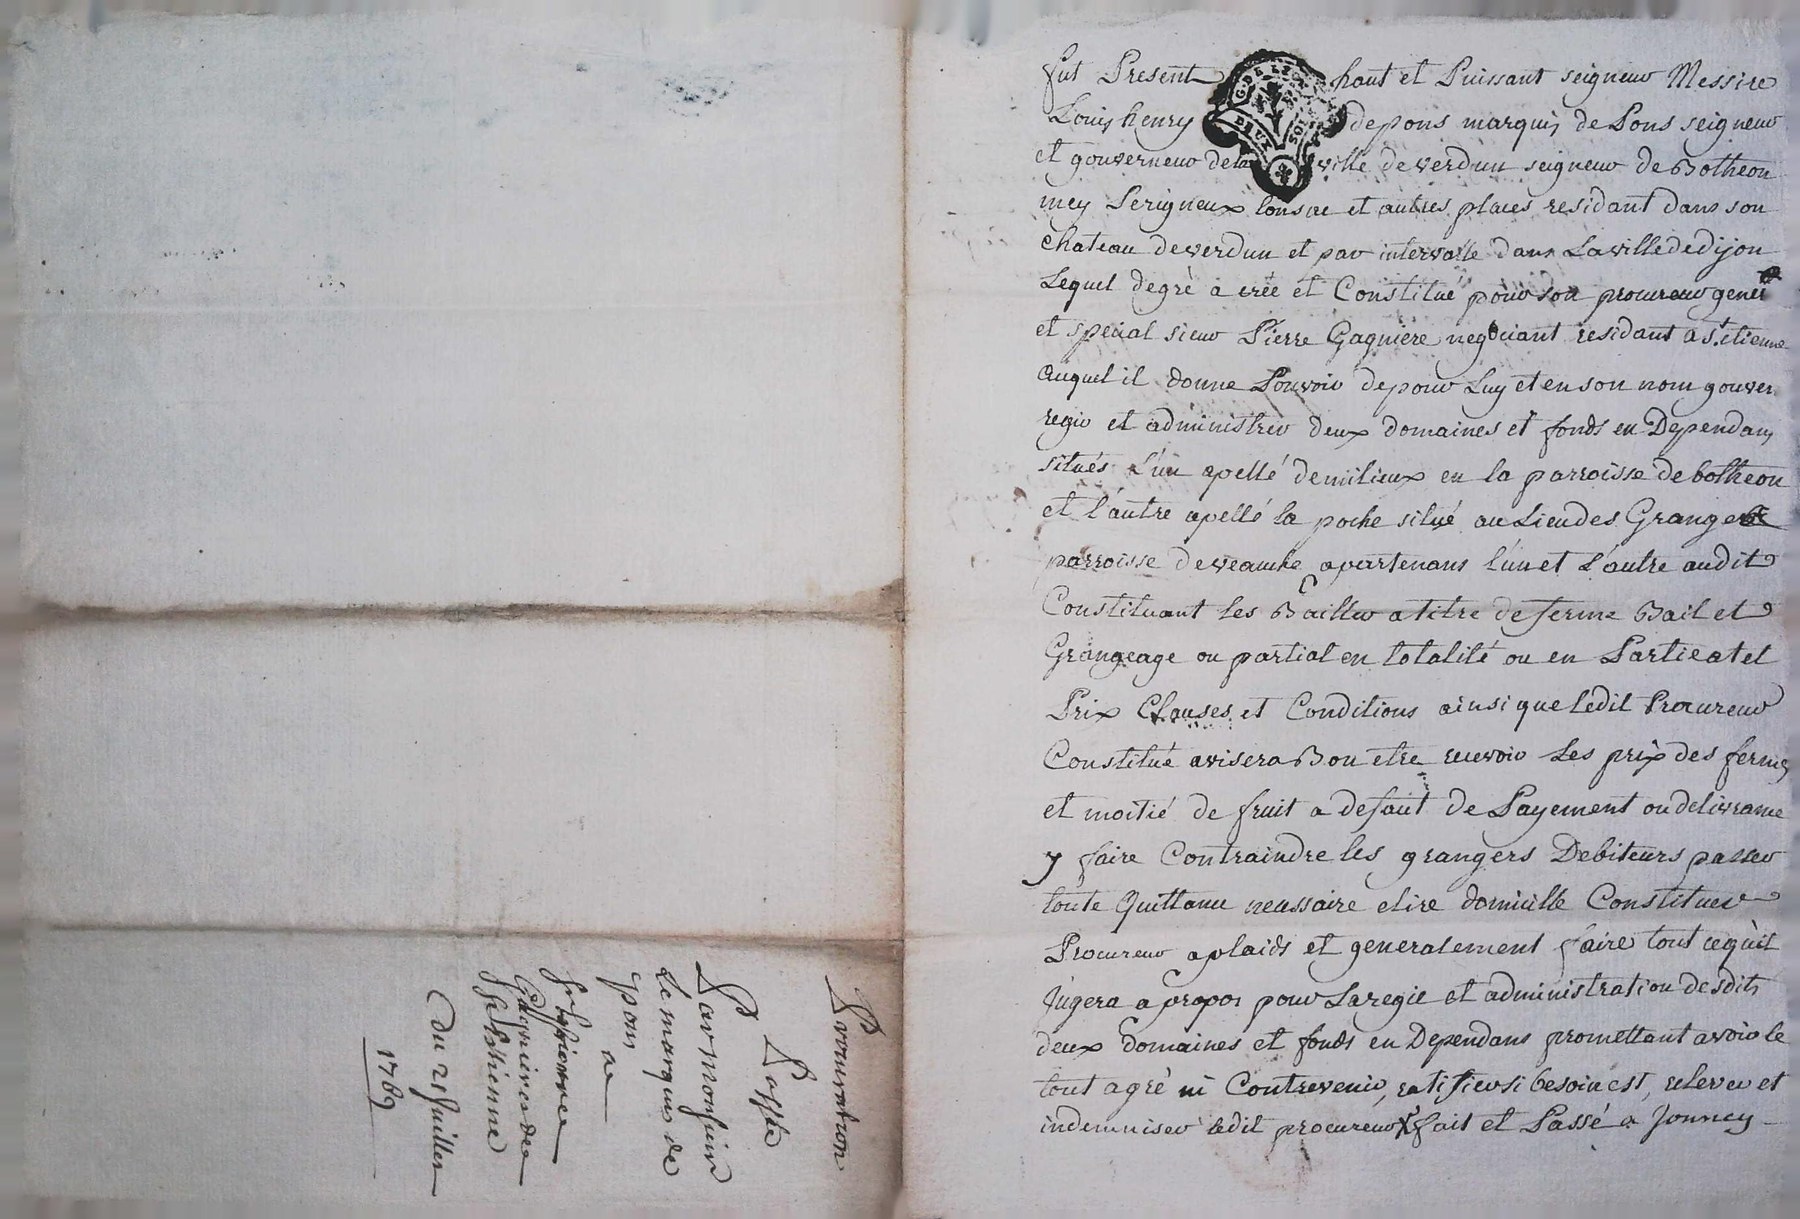 fut Present haut et Puissant seigneur Messire
Louis henry de pons marquis de Pons seigneur
et gouverneur de la ville de verdun seigneur de Botheon
mey Perigneux et autres places residant dans son
chateau de verdun et par intervalle dans La ville de dijon
Lequel degrè à crée et Constitué pour son procureur gener
et special sieur Pierre Gagniere negociant residant a St. etienne
auquel il donne Pouvoir de pour Luy et en son nom gouver
regir et administrer deux domaines et fonds en Dependans
situés L'un apellé demilieux en la parroisse de botheon
et l'autre apellé la poche situé au Lieu des Granges
parroisse de veauche apartenans l'un et L'autre audit
Constituant les Bailler a titre de ferme Bail et
Grangeage ou partial en totalité ou en Partie a tel
Prix Clauses et Conditions ainsi que ledit Procureur
Constitué avisera Bon etre recevoir Les prix des fermes
et moitié de fruit a defaut de Payement ou delivrance
y faire Contraindre les grangers Debiteurs passer
toute Quittance necessaire elire domicille Constituer
Procureur a plaids et generalement faire tout ce qu'il
Jugera a propos pour La regie et administration desdits
deux Domaines et fonds en Dependans promettant avoir le
tout agré ni Contrevenir, ratifier si besoin est, relever et
indemniser ledit procureur fait et Passé a Jonncy
Procuration
Passée
Par Monsieur
Le marquis de
pons
au
Sr pierre
Gagniere de
St Etienne
Du 21 Juillet
1769